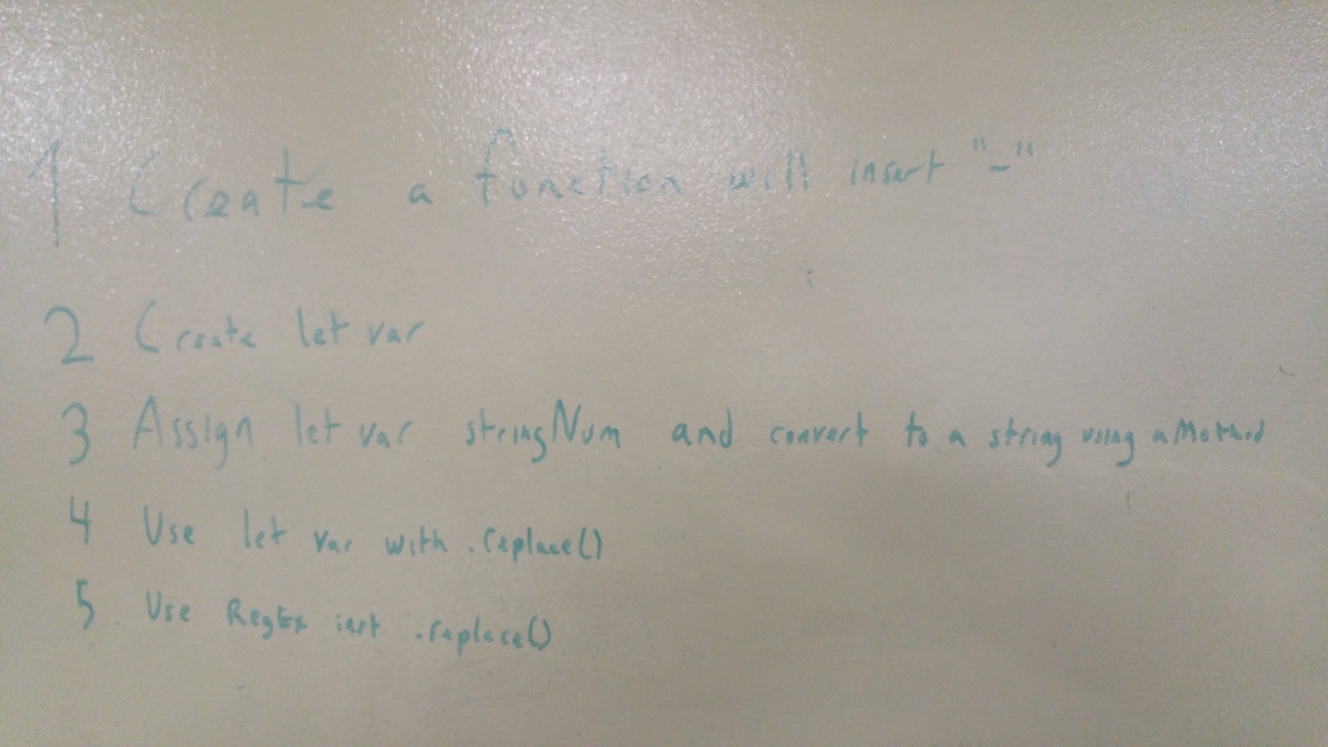 1 Create a function will insert "-"
2 Create let var
3 Assign let var stringNum and convert to a string using a Method
4 Use let var with .replace()
5 Use RegEx .replace()